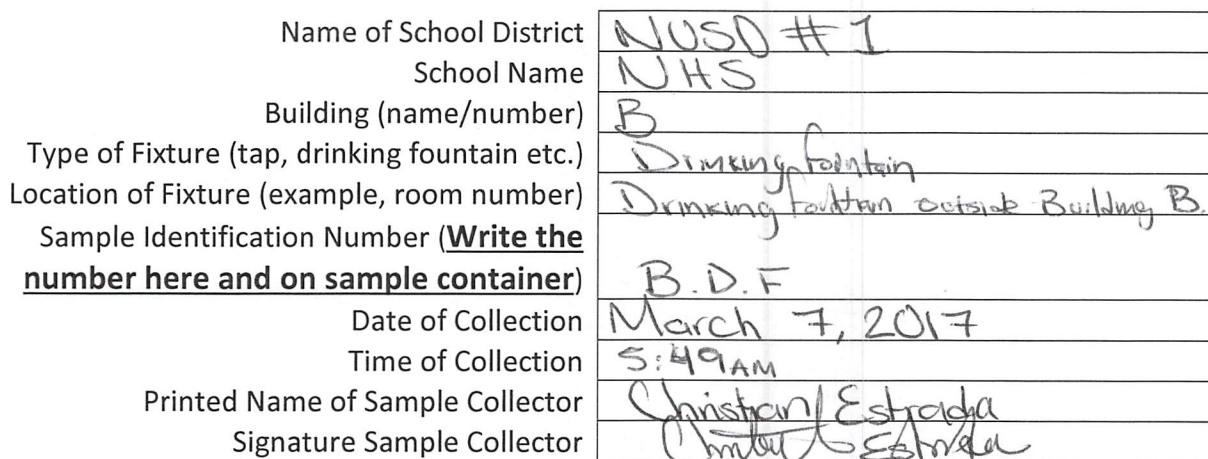 Name of School District NUSD #1
School Name NHS
Building (name/number) B
Type of Fixture (tap, drinking fountain etc.) Drinking fountain
Location of Fixture (example, room number) Drinking fountain outside Building B.
Sample Identification Number (Write the
number here and on sample container) B.D.F
Date of Collection March 7, 2017
Time of Collection 5:49AM
Printed Name of Sample Collector Christian Estrada
Signature Sample Collector Estrada